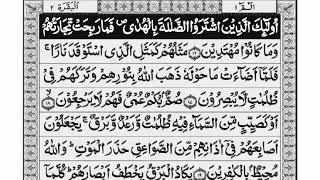 البقرة ٢
الٓمّٓ ١
أُولٰٓئِكَ الَّذِيْنَ اشْتَرَوُا الضَّلٰلَةَ بِالْهُدٰى ۪ فَمَا رَبِحَتْ تِّجَارَتُهُمْ
وَمَا كَانُوْا مُهْتَدِيْنَ ﴿١٦﴾ مَثَلُهُمْ كَمَثَلِ الَّذِى اسْتَوْقَدَ نَارًا ۚ
فَلَمَّآ اَضَآءَتْ مَا حَوْلَهٗ ذَهَبَ اللّٰهُ بِنُوْرِهِمْ وَتَرَكَهُمْ فِىْ
ظُلُمٰتٍ لَّا يُبْصِرُوْنَ ﴿١٧﴾ صُمٌّۢ بُكْمٌ عُمْىٌ فَهُمْ لَا يَرْجِعُوْنَ ﴿١٨﴾
اَوْ كَصَيِّبٍ مِّنَ السَّمَآءِ فِيْهِ ظُلُمٰتٌ وَّرَعْدٌ وَّبَرْقٌ ۚ يَجْعَلُوْنَ
اَصَابِعَهُمْ فِىْٓ اٰذَانِهِمْ مِّنَ الصَّوَاعِقِ حَذَرَ الْمَوْتِ ؕ وَاللّٰهُ
مُحِيْطٌۢ بِالْكٰفِرِيْنَ ﴿١٩﴾ يَكَادُ الْبَرْقُ يَخْطَفُ اَبْصَارَهُمْ ؕ كُلَّمَآ